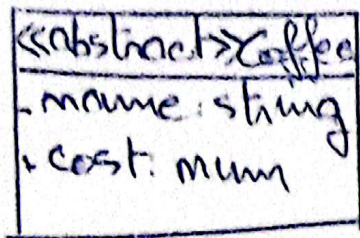 <<abstract>>Coffee
- name: string
- cost: num